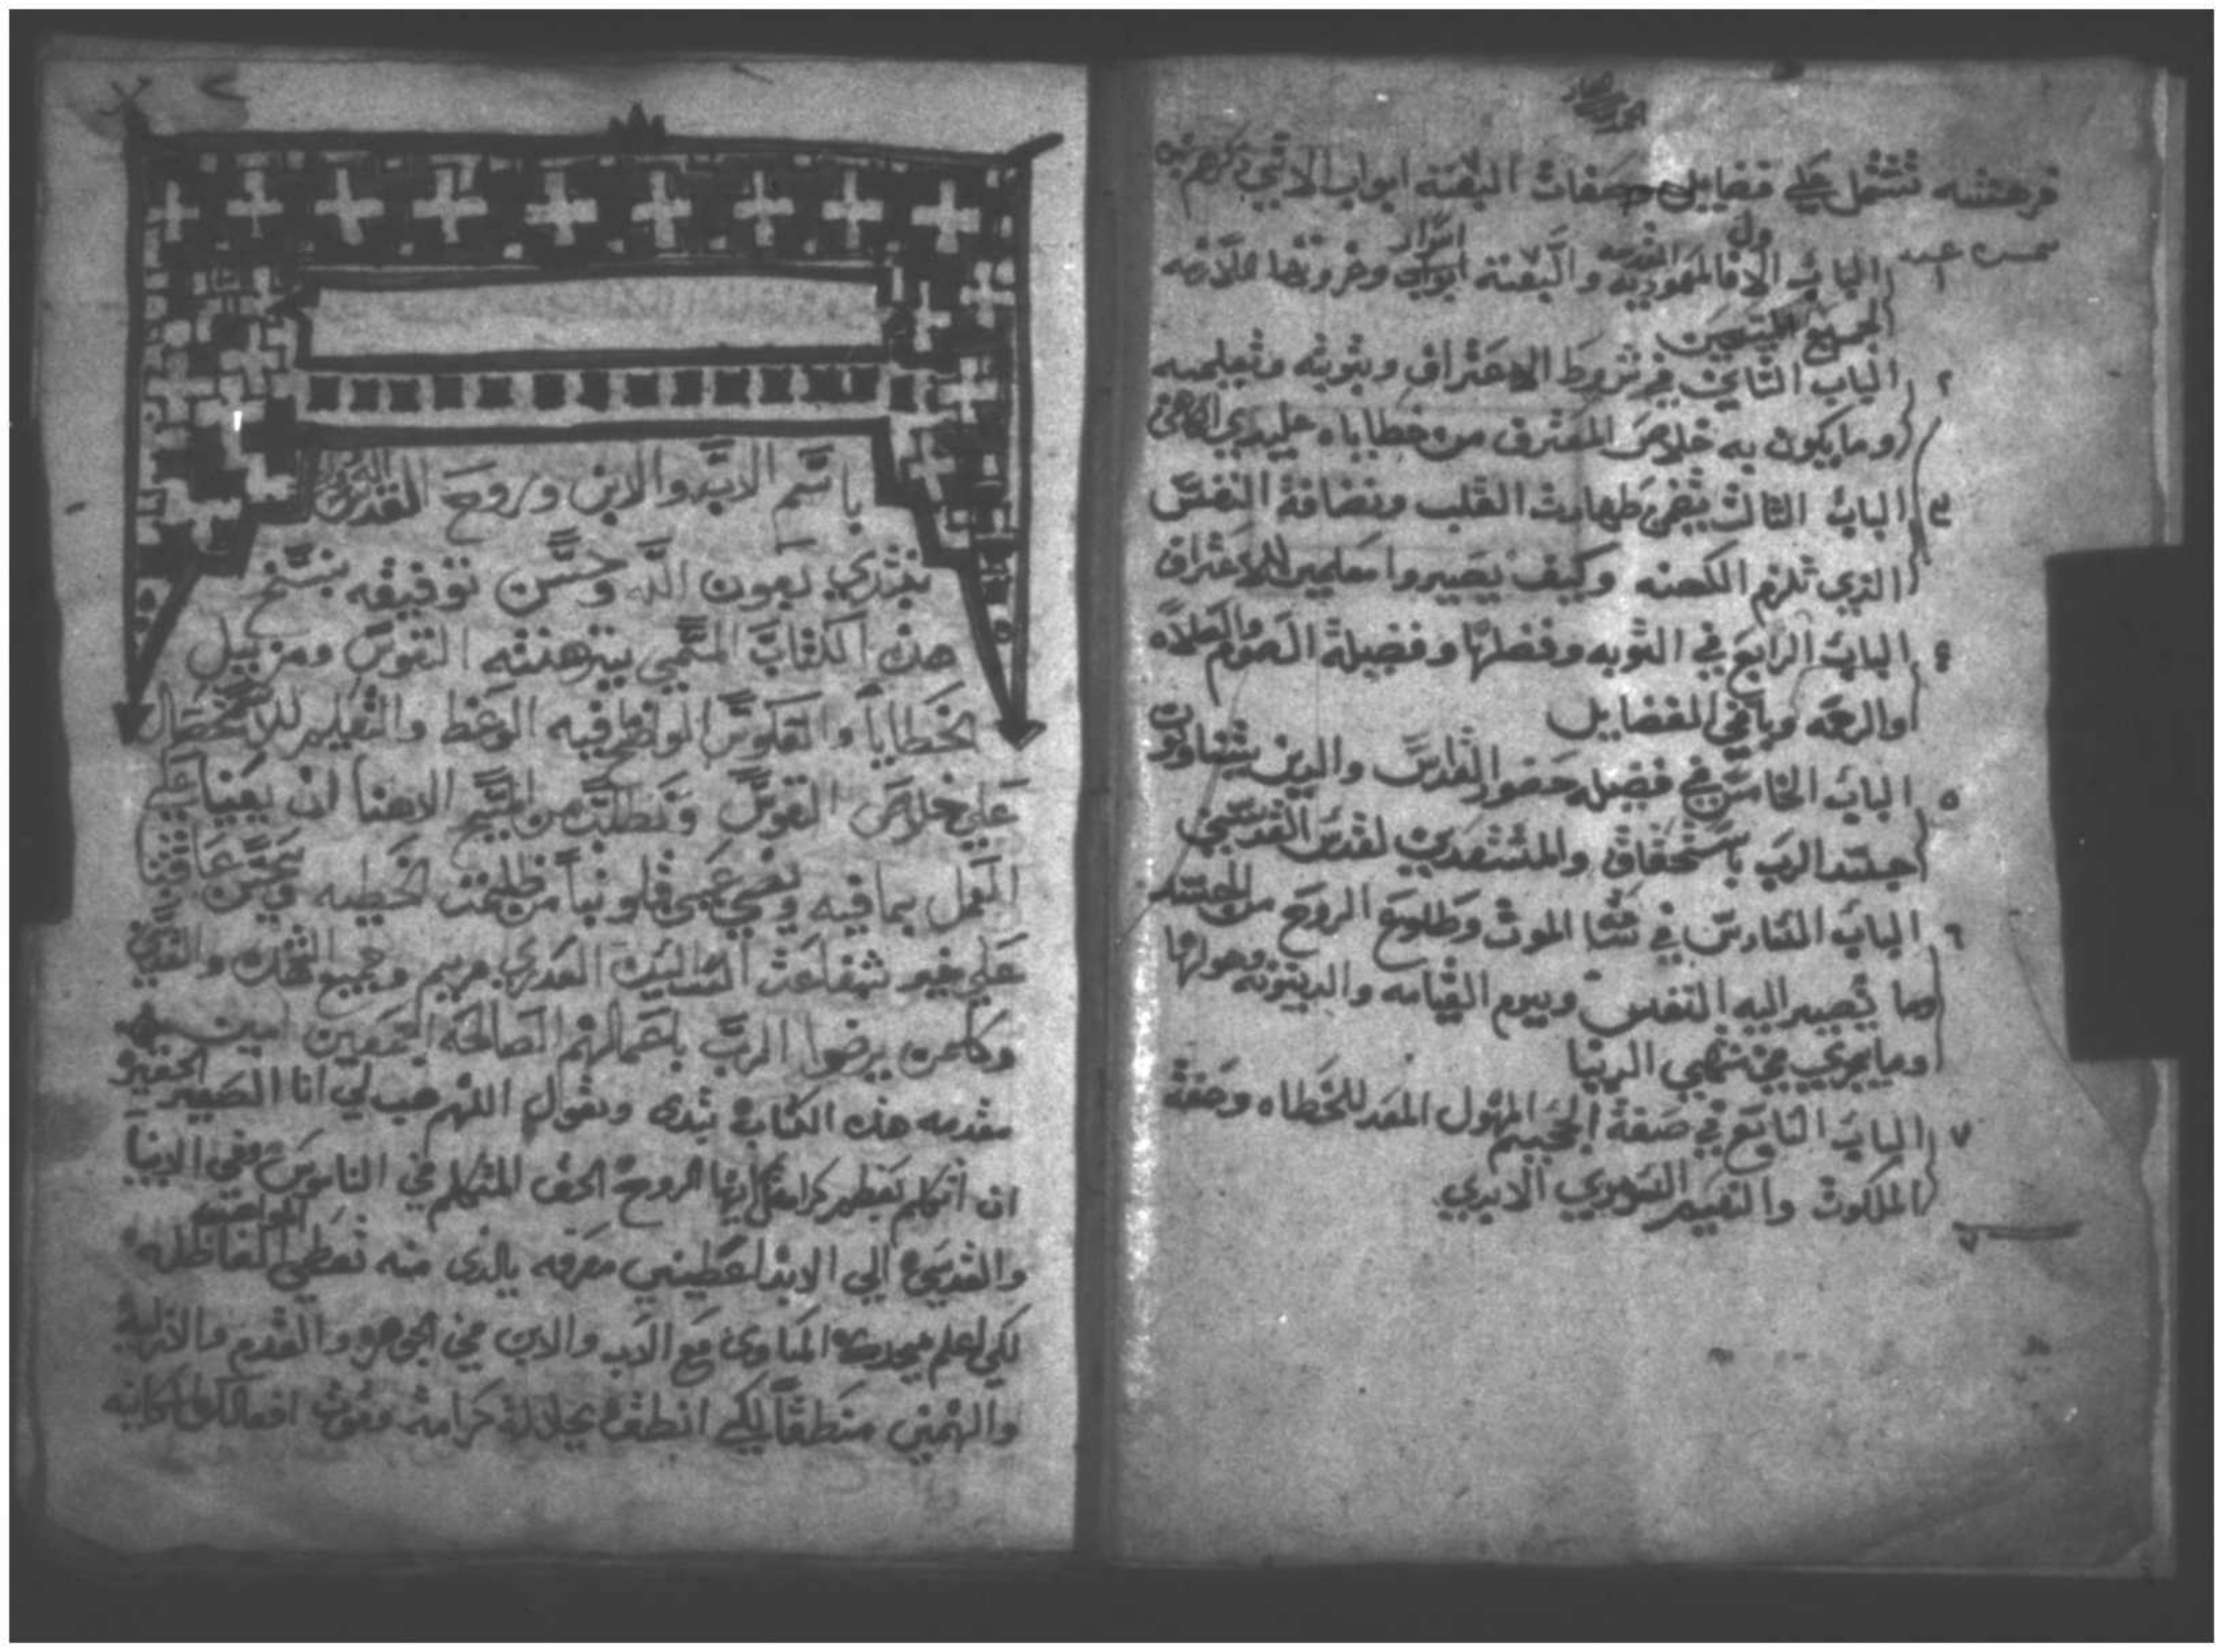 فرهتسه تشتمل علي فضايل وصفات البعنة ابواب الاتي ذكرهم
الباب الاول المعموديه المقدسه والبعنة اسرار وخروتها اللازمه
لجميع المسيحيين
٢ الباب التاني في شروط الاعتراف وتوبته وتعليمه
وما يكون به خلاص المعترف من خطاياه علي يدي الكاهن
٣ الباب التالت في طهارت القلب ونضافة النفس
الذي تلزم الكهنه وكيف يصيروا معلمين للاعتراف
٤ الباب الرابع في التوبه وفضلها وفضيلة الصوم والصلاه
والرحمه وباقي الفضايل
٥ الباب الخامس في فضيله حضور القداس والدين يتناولون
جسد الرب باستحقاق والمستعدين لقدس القدسين
٦ الباب السادس في الموت وطلوع الروح من الجسد
وما تصير اليه النفس ويوم القيامه والدينونه وهولها
وما يجري في منتهي الدنيا
٧ الباب السابع في صفة الجحيم المهول المعد للخطاه وصفة
الملكوت والنعيم السرمدي الابدي
باسم الاب والابن وروح القدس
نبتدي بعون الله وحسن توفيقه بنسخ
هدا الكتاب المسمي بترهته النفوس ومزيل
الخطايا والعكوس الموضح فيه الوعظ والتعليم للاستحصال
علي خلاص النفوس ونطلب من المسيح الاهنا ان يعينا علي
العمل بما فيه ويضي قلوبنا من ظلمت الخطيه ويحسن عاقبتنا
علي خير شفاعت الست السيده العدري مريم وجميع الشهدا والقديسين
وكلمن يرضوا الرب باعمالهم الصالحه اجمعين امين
مقدمه هده الكتاب نبتدي ونقول اللهم هب لي انا الصغير الحقير
ان اتكلم بعظيم كرامتك ايها الروح الحق المتكلم في الناموس وفي الانبيا
والقديسين الي الابد اعطيني معرفه بالدي منه تعطي المواهب
لكي اعلم مجدك المساوي مع الاب والابن في الجوهر والقدم والازليه
والهمني منطقا لكي انطق بجلالة كرامة وقوت افعالك